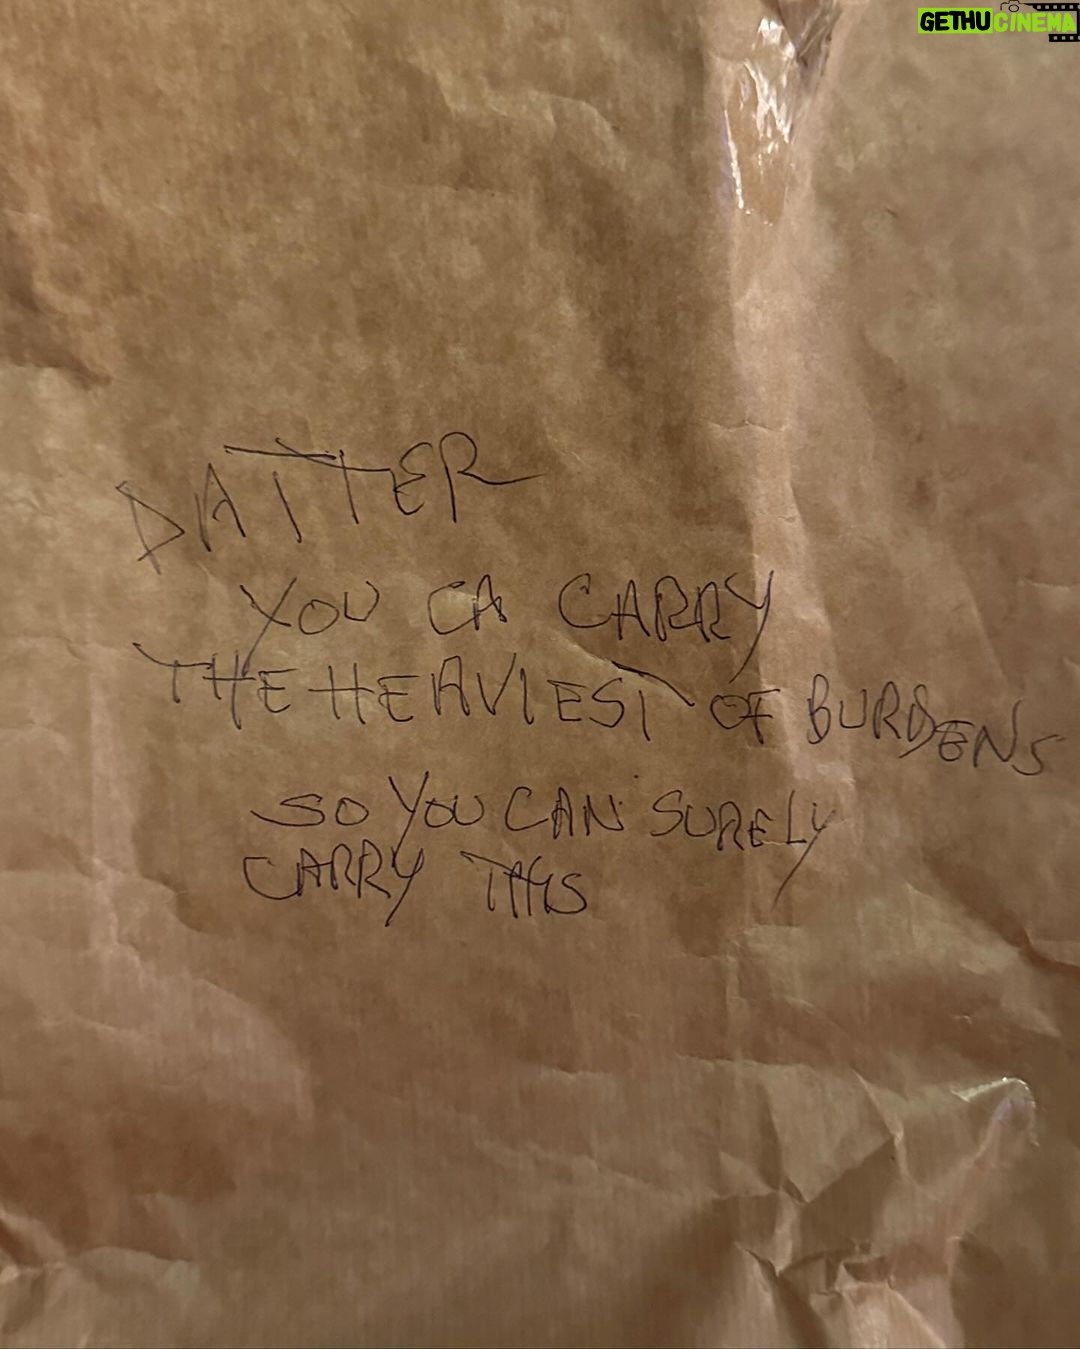 GETHUCINEMA
DATTER
YOU CA CARRY
THE HEAVIEST OF BURDENS
SO YOU CAN SURELY
CARRY THIS